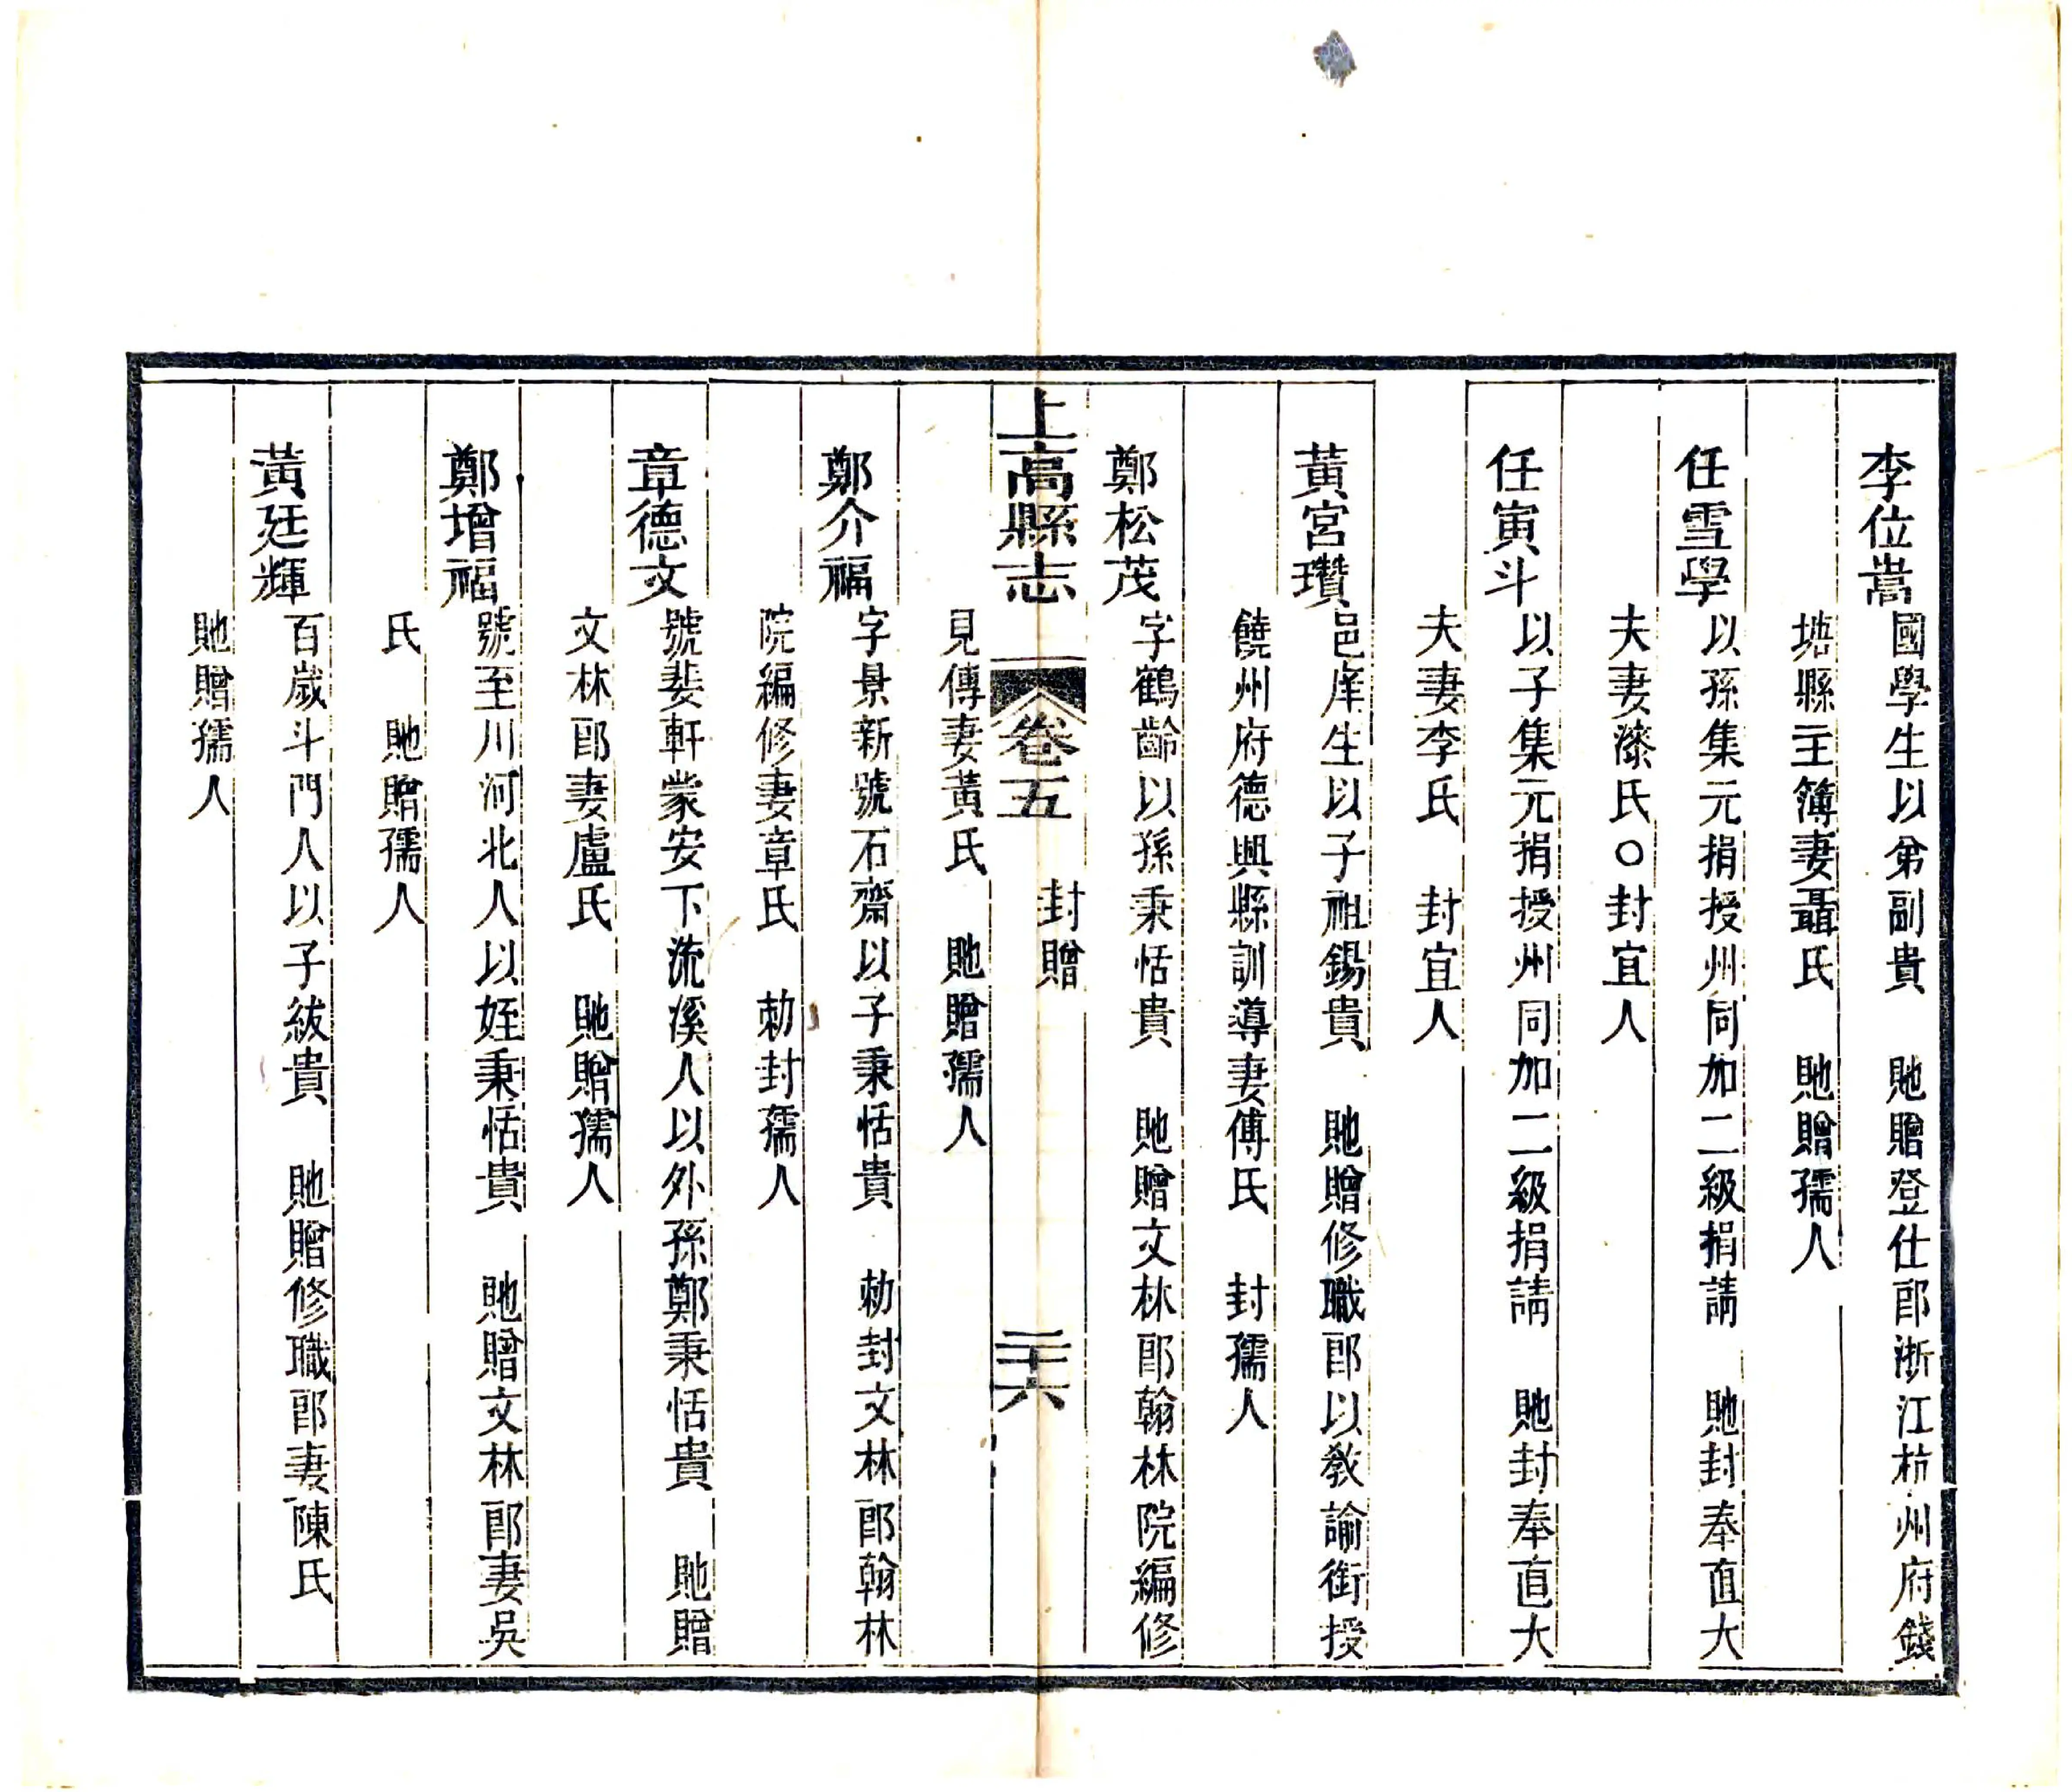 李位嵩國學生以弟副貴　貤贈登仕郎浙江杭州府錢
塘縣主簿妻聶氏　貤贈孺人
任雪學以孫集元捐授州同加二級捐請　貤封奉直大
夫妻漆氏○封宜人
任寅斗以子集元捐授州同加二級捐請　貤封奉直大
夫妻李氏　封宜人
黃宮瓚邑庠生以子祖錫貴　貤贈修職郎以教諭銜授
饒州府德興縣訓導妻傅氏　封孺人
鄭松茂字鶴齡以孫秉恬貴　貤贈文林郎翰林院編修
上高縣志　卷五　封贈　二十六
見傳妻黃氏　貤贈孺人
鄭介福字景新號石齋以子秉恬貴　勅封文林郎翰林
院編修妻章氏　勅封孺人
章德文號斐軒蒙安下流溪人以外孫鄭秉恬貴　貤贈
文林郎妻盧氏　貤贈孺人
鄭增福號至川河北人以姪秉恬貴　貤贈文林郎妻吳
氏　貤贈孺人
黃廷輝百歲斗門人以子紱貴　貤贈修職郎妻陳氏
貤贈孺人